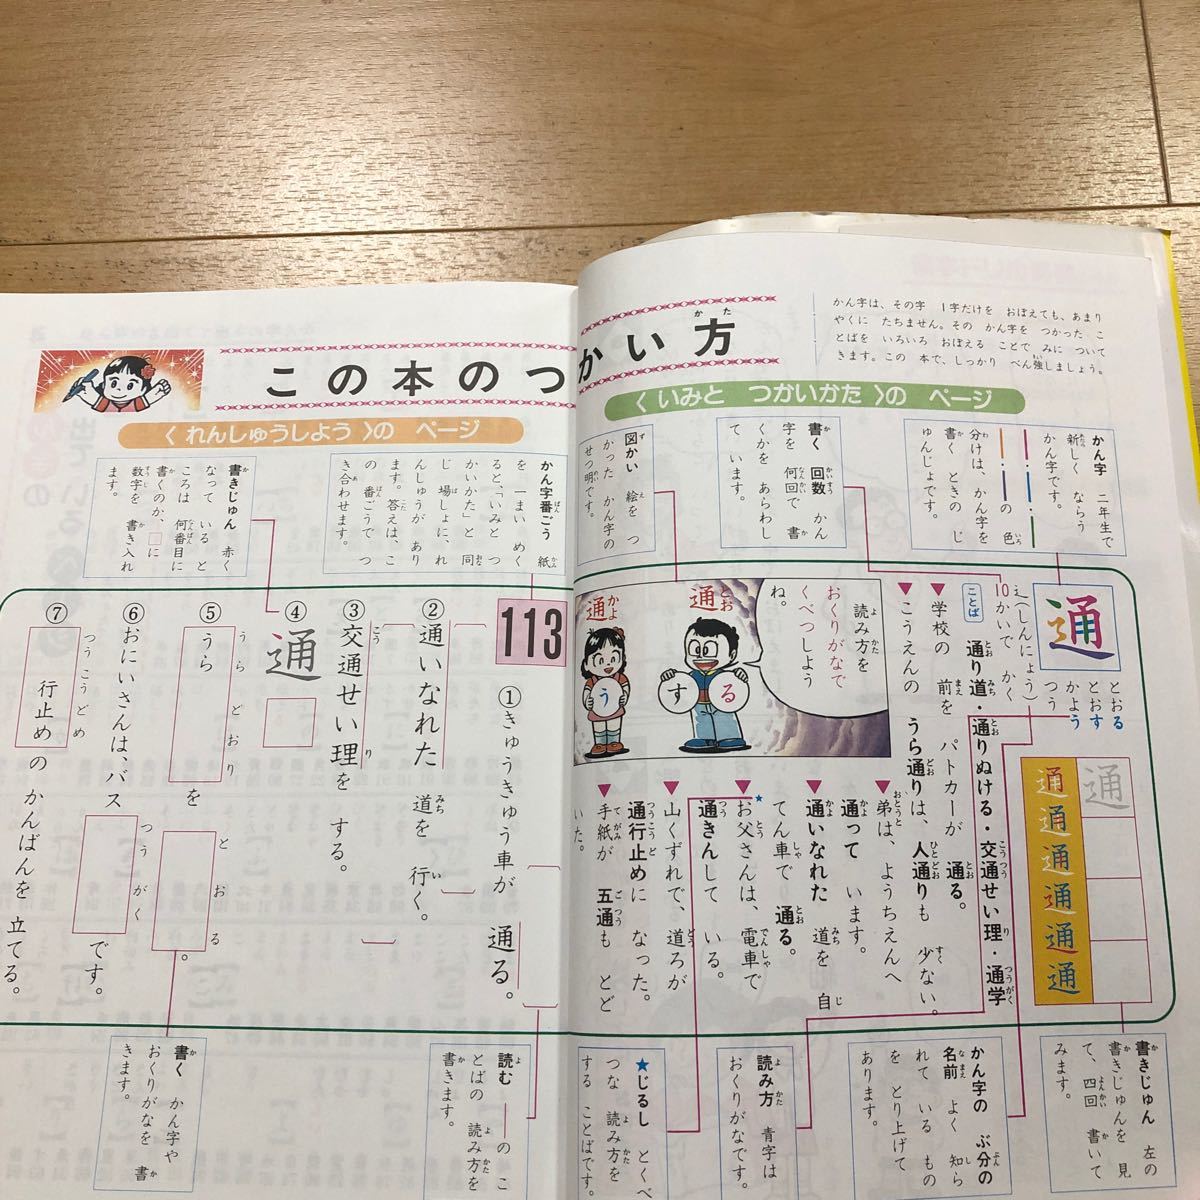 この本のつかい方
かた
かん字は、その字 1字だけを おぼえても、あまり
やくに たちません。その かん字を つかった こ
とばを いろいろ おぼえる ことで みに ついて
きます。この 本で、しっかり べん強しましょう。
〈いみと つかいかた〉の ページ
かん字 二年生で
新しく ならう
かん字です。
の 色
分けは、かん字を
書く ときの じ
ゅんじょです。
書く回数 かん
字を 何回で 書
くかを あらわし
て います。
図かい 絵を つ
かった かん字の
せつ明です。
通
とおる
とおす
かよう
つう
辶(しんにょう)
10かいで かく
ことば
通り道・通りぬける・交通せい理・通学
▼学校の 前を パトカーが 通る。
▼こうえんの うら通りは、人通りも 少ない。
▼弟は、ようちえんへ
通って います。
▼通いなれた 道を 自
てん車で 通る。
▼お父さんは、電車で
通きんして いる。
▼山くずれで、道ろが
通行止めに なった。
▼手紙が 五通も とど
いた。
読み方を
おくりがなで
くべつしよう
ね。
通 とお
る
す
通 かよ
う
通
通
通
通
通
通
通
書きじゅん 左の
書きじゅんを 見
て、四回 書いて
みます。
かん字の ぶ分の
名前 よく 知ら
れて いる もの
を とり上げて
あります。
読み方 青字は
おくりがなです。
★じるし とくべ
つな 読み方を
する ことばです。
〈れんしゅうしよう〉の ページ
かん字番ごう 紙
を 一まい めく
ると、「いみと つ
かいかた」と 同
じ 場しょに、れ
んしゅうが あり
ます。答えは、こ
の 番ごうで つ
き合わせます。
書きじゅん 赤く
なって いる と
ころは 何番目に
書くのか、□に
数字を 書き入れ
ます。
113
①きゅうきゅう車が 通る。
②通いなれた 道を 行く。
③交通せい理を する。
④通
⑤うらどおり
うら を とおる 。
⑥おにいさんは、バス つうがく です。
⑦つうこうどめ
行止めの かんばんを 立てる。
読む ーの こ
とばの 読み方を
書きます。
書く かん字や
おくりがなを 書
きます。